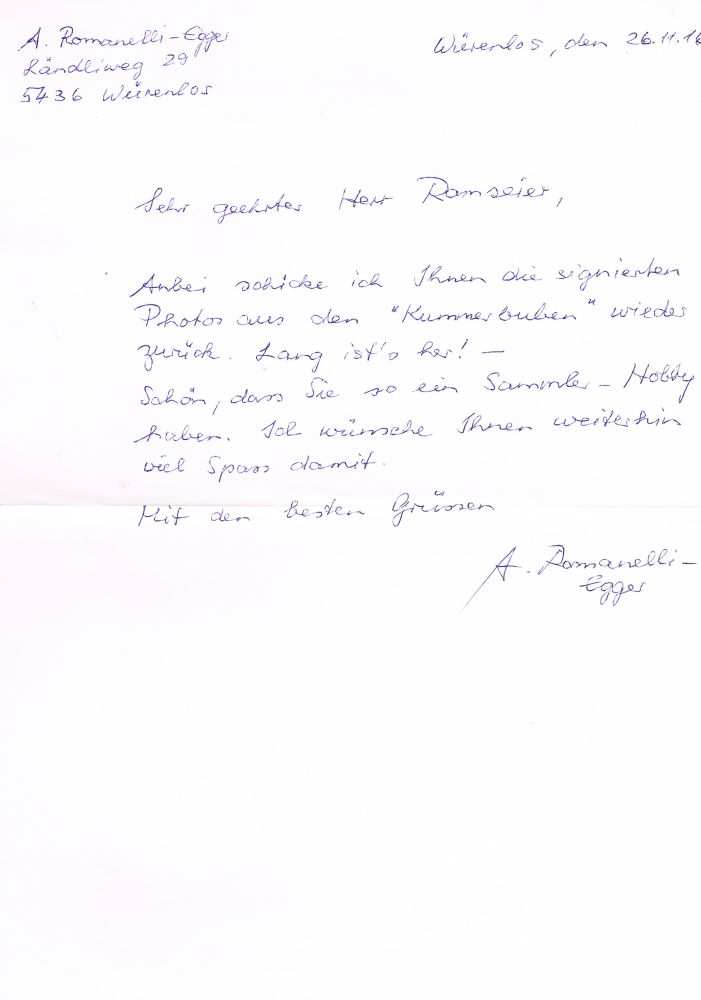 A. Romanelli-Egger
Ländliweg 29
5436 Würenlos
Würenlos, den 26.11.16
Sehr geehrter Herr Ramseier,
Anbei schicke ich Ihnen die signierten
Photos aus den "Kummerbuben" wieder
zurück. Lang ist's her! —
Schön, dass Sie so ein Sammler-Hobby
haben. Ich wünsche Ihnen weiterhin
viel Spass damit.
Mit den besten Grüssen
A. Romanelli-
Egger